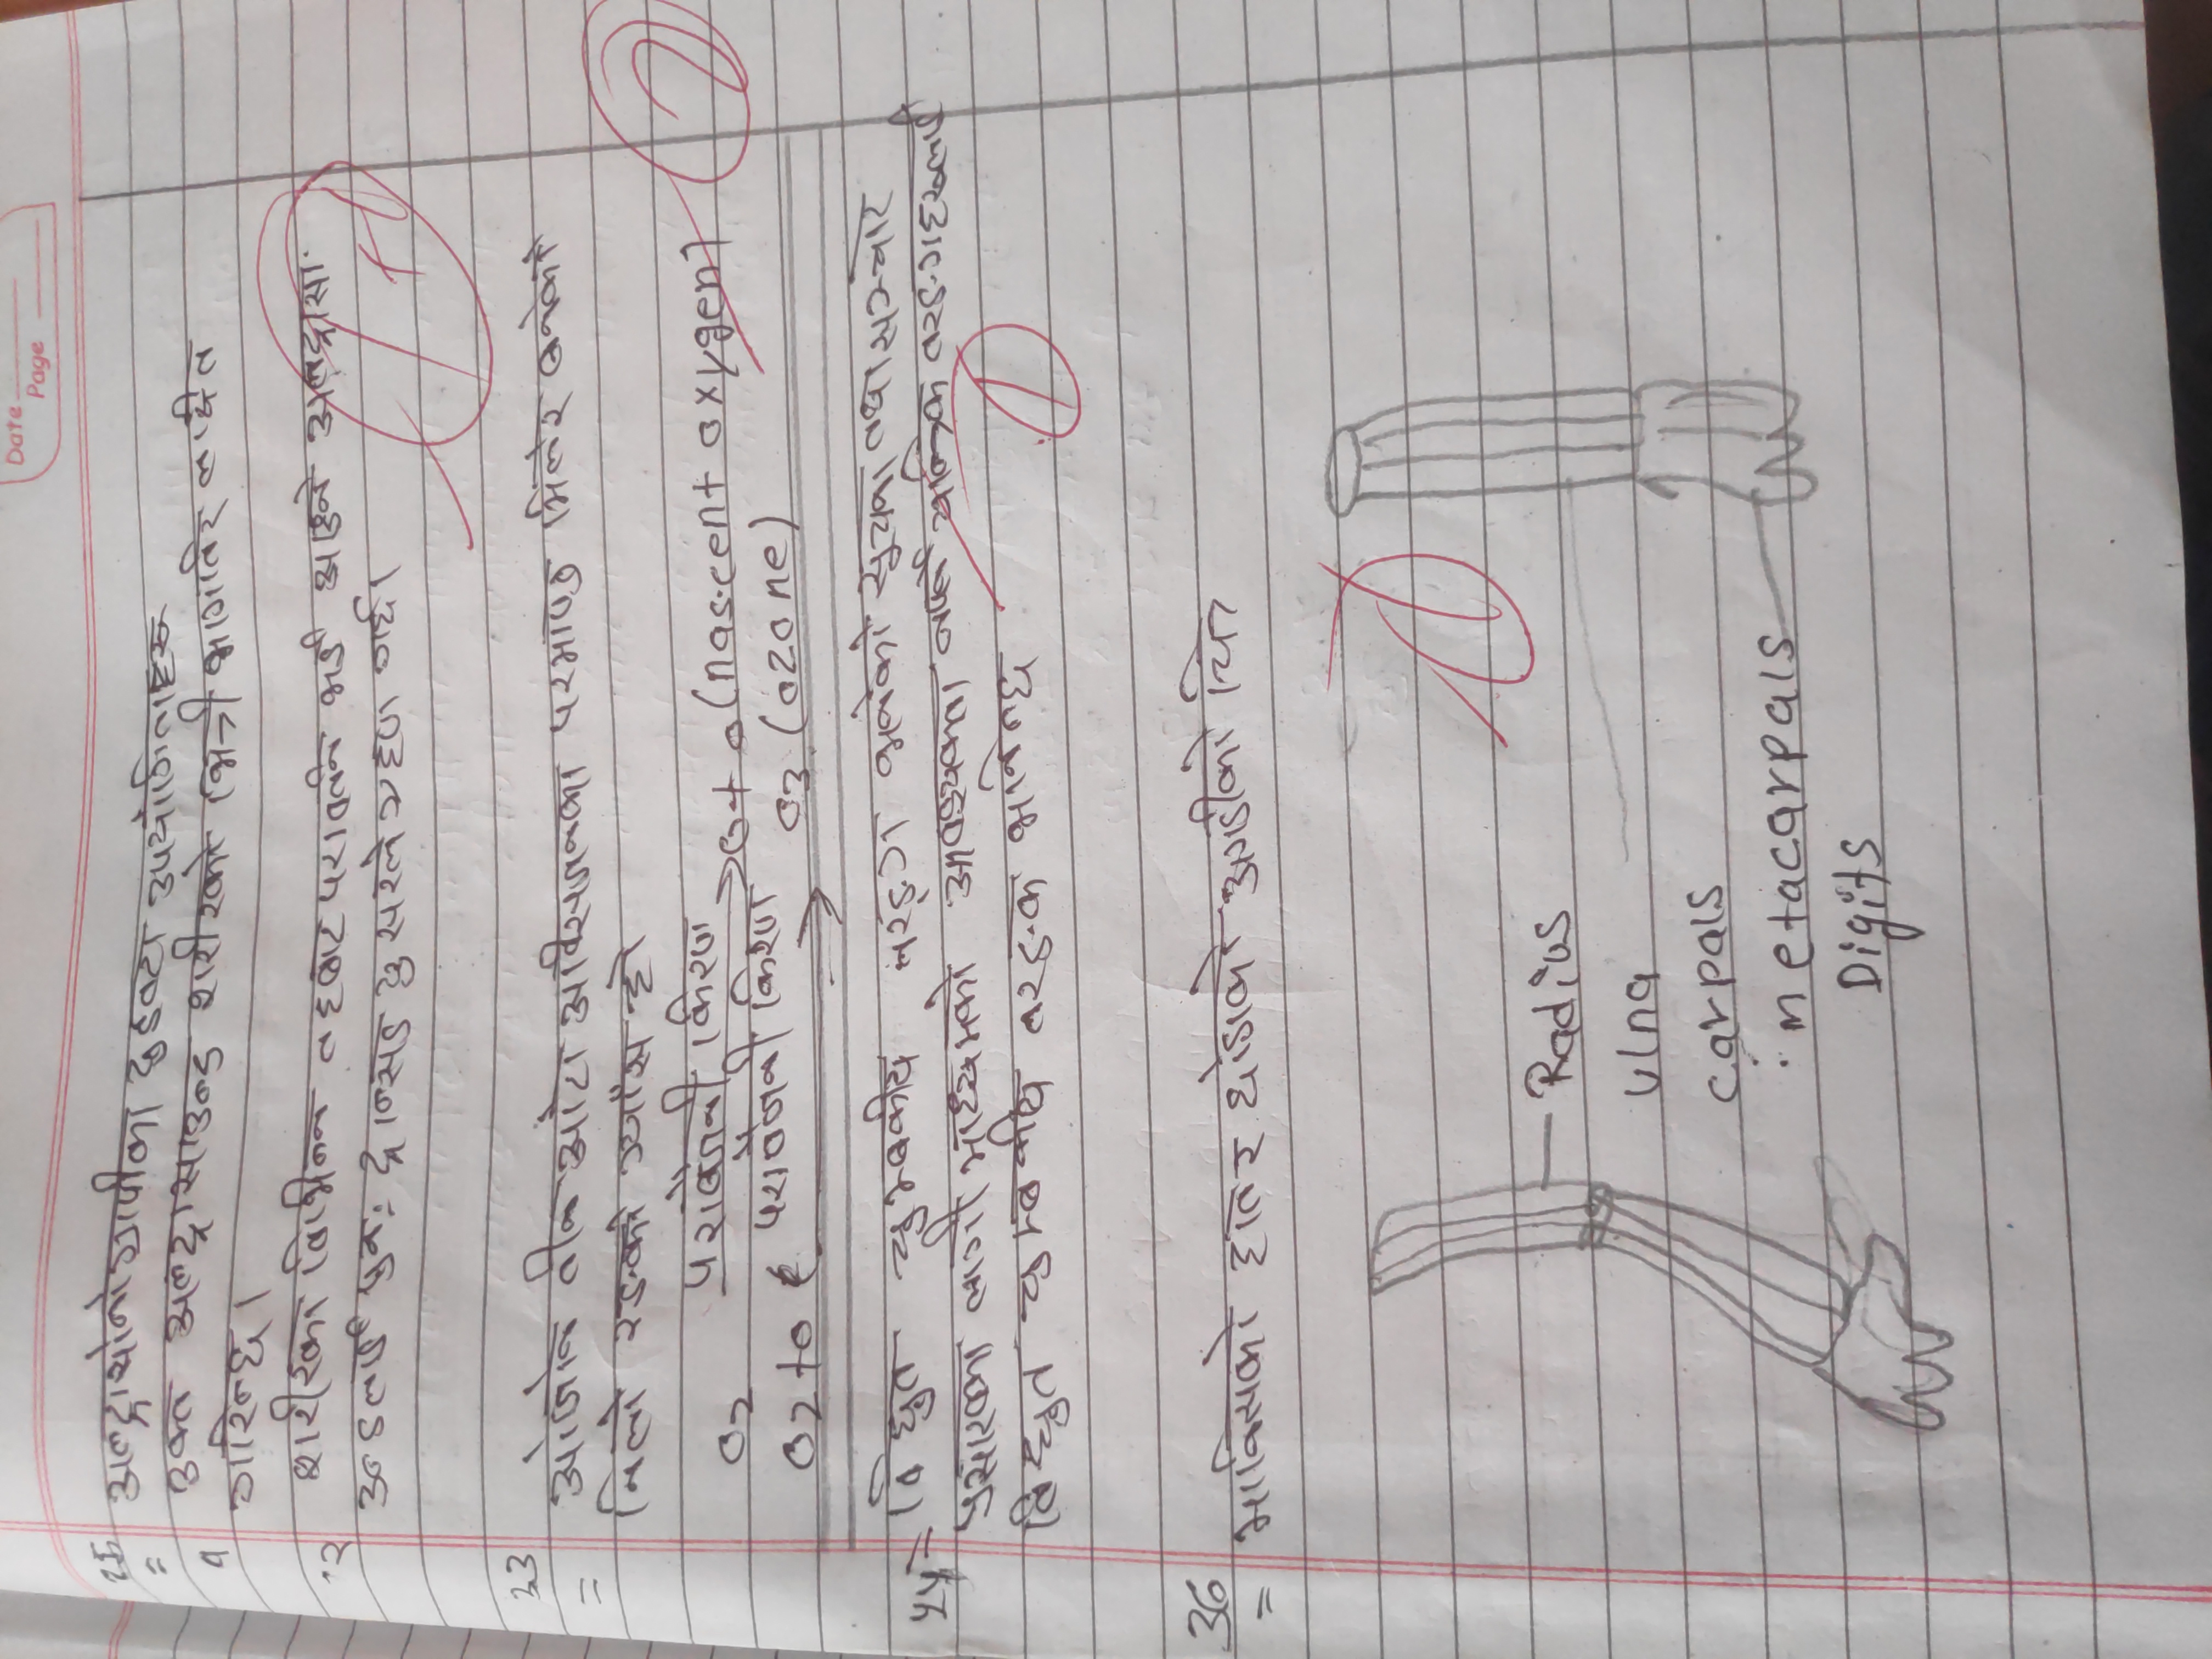 Date
Page
25
= अल्ट्रासोनोग्राफीका दुइवटा उपयोगिताहरू
१ उक्त अल्ट्रासाउन्ड शरीरको भित्री भागतिर लक्षित
गरिन्छ।
२ शरीरका विभिन्न तहबाट परावर्तन भई आउने अल्ट्रासा
उन्डलाई पुनः ट्रान्सड्युसरले ग्रहण गर्छ।
33
= ओजोन तीन ओटा अक्सिजनका परमाणु मिलेर बनेको
निलो रङको ग्याँस हो
O2 पराबैजनी किरण → O + O (nascent oxygen)
O2 + O पराबैजनी किरण → O3 (ozone)
= विद्युत चुम्बकीय तरङ्ग भनेको सूचना तथा सञ्चार
प्रसारका लागी माध्यमको आवश्यकता नपर्ने यान्त्रिक तरङगहरूलाई
विद्युत चुम्बकीय तरङक भनिन्छ
1
36
= मानिसको हात र घोडाको अगाडीको चित्र
Radius
ulna
carpals
metacarpals
Digits